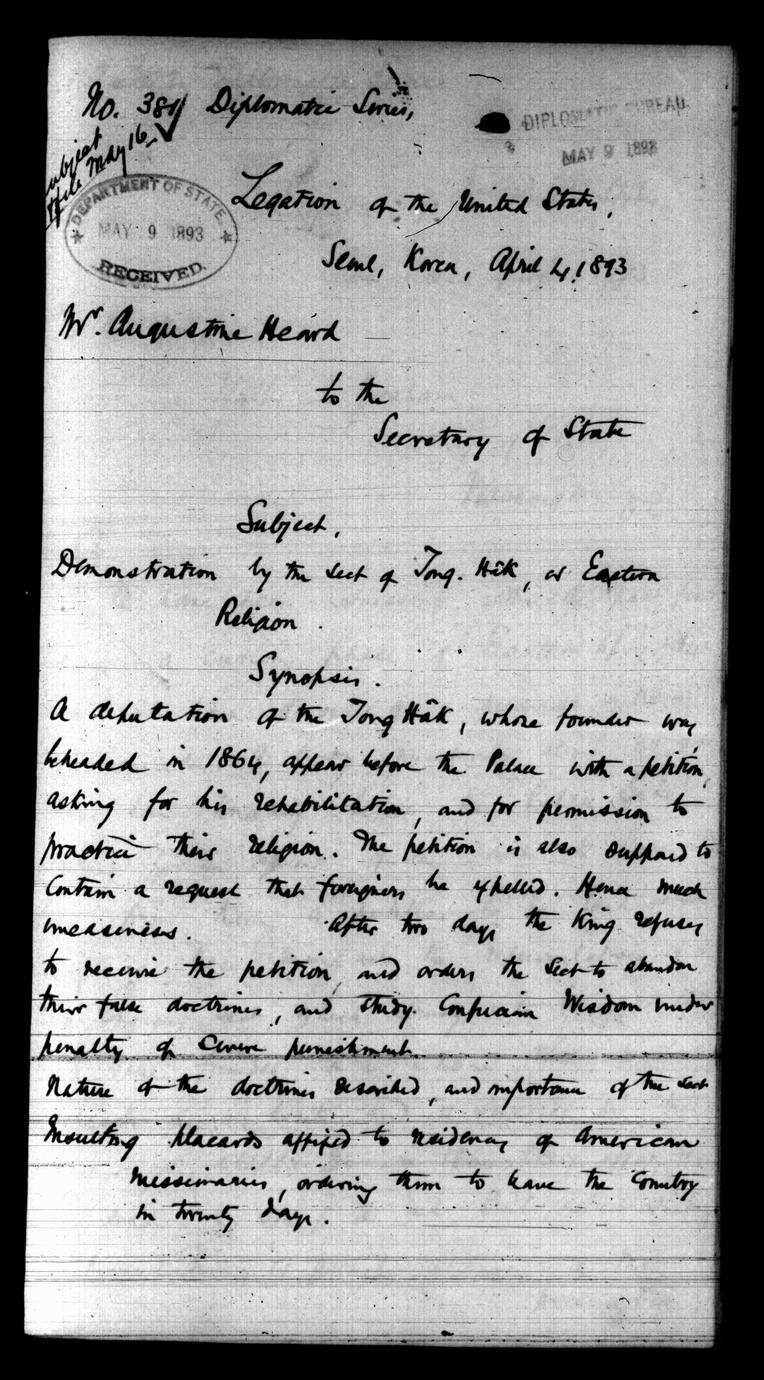 No. 381 Diplomatic Series,
DIPLOMATIC BUREAU.
MAY 9 1893
Subject
File May 16
DEPARTMENT OF STATE.
MAY 9 1893
RECEIVED.
Legation of the United States,
Seoul, Korea, April 4, 1893
Mr. Augustine Heard
to the
Secretary of State
Subject.
Demonstration by the sect of Tong. Hâk, or Eastern
Religion.
Synopsis.
A deputation of the Tong Hâk, whose founder was
beheaded in 1864, appear before the Palace with a petition,
asking for his rehabilitation, and for permission to
practice their religion. The petition is also supposed to
contain a request that foreigners be expelled. Hence much
uneasiness. After two days the King refuses
to receive the petition, and orders the Sect to abandon
their false doctrines, and study Confucian Wisdom under
penalty of severe punishment.
Nature of the doctrines described, and importance of the sect
Insulting placards affixed to residences of American
Missionaries, ordering them to leave the Country
in twenty days.